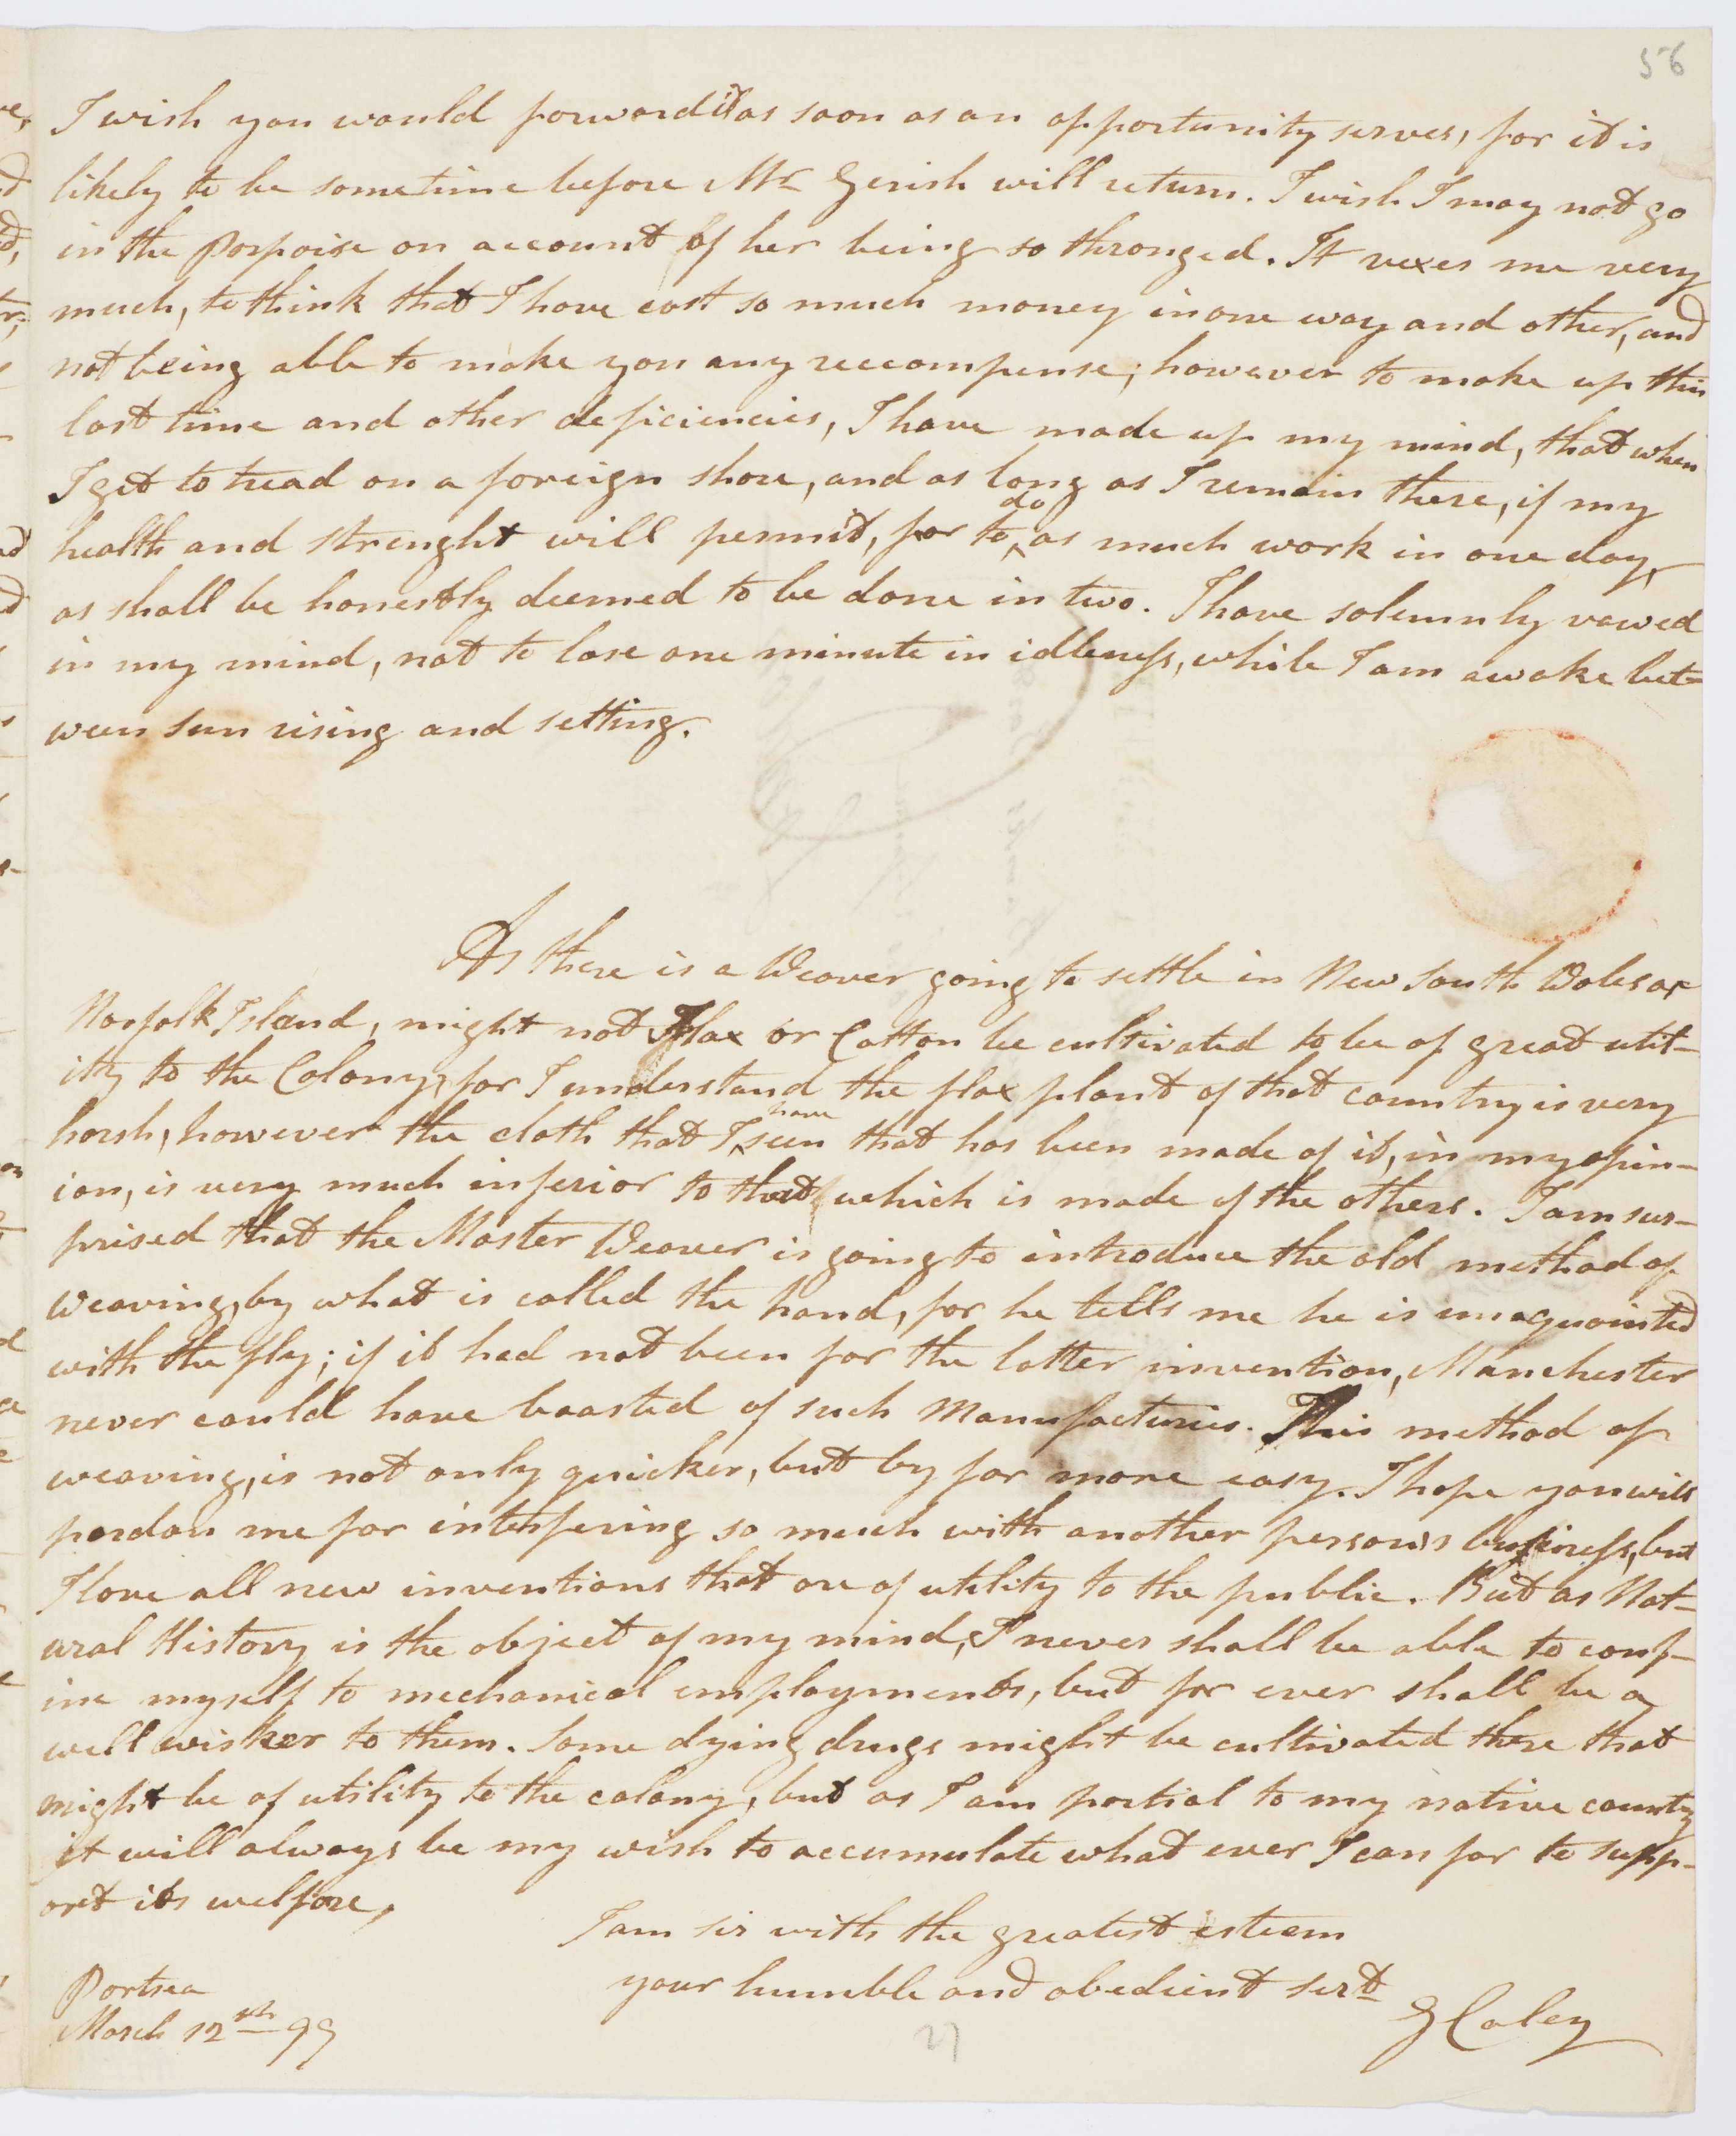 56
I wish you would forward it as soon as an opportunity serves, for it is
likely to be sometime before Mr Gerish will return. I wish I may not go
in the Porpoise on account of her being so thronged. It vexes me very
much, to think that I have cost so much money in one way and other, and
not being able to make you any reccompense; however to make up this
lost time and other deficiencies, I have made up my mind, that when
I get to tread on a foreign shore, and as long as I remain there, if my
health and strenght will permit, for to do as much work in one day,
as shall be honestly deemed to be done in two. I have solemnly vowed
in my mind, not to lose one minute in idleness, while I am awake bet-
ween sun rising and setting.
As there is a Weaver going to settle in New South Wales or
Norfolk Island, might not Flax or Cotton be cultivated to be of great util-
ity to the Colony, for I understand the flax plant of that country is very
harsh, however the cloth that I have seen that has been made of it, in my opin-
ion, is very much inferior to that which is made of the others. I am sur-
prised that the Master Weaver is going to introduce the old method of
Weaving, by what is called the hand, for he tells me he is unacquainted
with the fly; if it had not been for the latter invention, Manchester
never could have boasted of such Manufacturies. This method of
weaving, is not only quicker, but by far more easy. I hope you will
pardon me for interfering so much with another persons business, but
I love all new inventions that are of utility to the public. But as Nat-
ural History is the object of my mind, I never shall be able to conf-
ine myself to mechanical employments, but for ever shall be a
well wisher to them. Some dying drugs might be cultivated there that
might be of utility to the colony, but as I am partial to my native county
it will always be my wish to accumulate what ever I can for to supp-
ort its welfare,
I am sir with the greatest esteem
your humble and obedient sert
G Caley
Portsea
March 12th 99
27